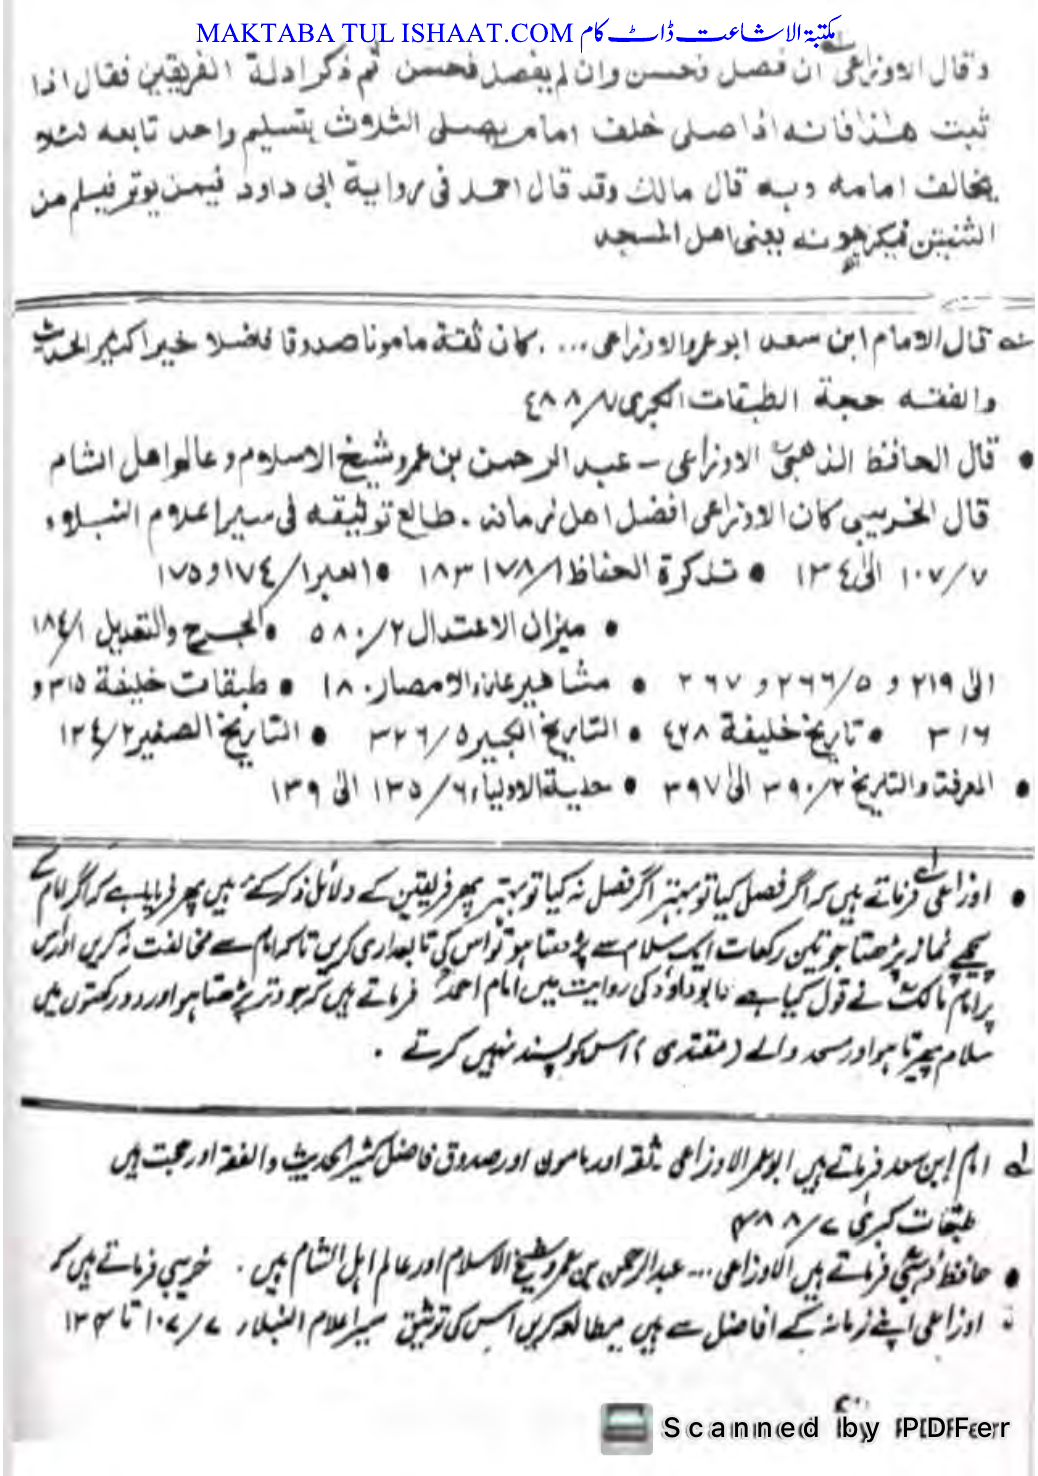 MAKTABA TUL ISHAAT.COM مکتبۃ الاشاعت ڈاٹ کام
وقال الاوزاعی ان فصل فحسن وان لم یفصل فحسن ثم ذکر ادلة الفریقین فقال اذا
ثبت هذا فانه اذا صلی خلف امام یصلی الثلاث بتسلیم واحد تابعه لئلا
یخالف امامه وبه قال مالک وقد قال احمد فی روایة ابی داود فیمن یوتر فیسلم من
الثنتین فیکرهونه یعنی اهل المسجد
له قال الامام ابن سعد ابو عمرو الاوزاعی .... کان ثقة مامونا صدوقا فاضلا خیرا کثیر الحدیث
والفقه حجة الطبقات الکبری ۷/۴۸۸
• قال الحافظ الذهبی الاوزاعی - عبد الرحمن بن عمرو شیخ الاسلام وعالم اهل الشام
قال الخریبی کان الاوزاعی افضل اهل زمانه . طالع توثیقه فی سیر اعلام النبلاء
۷/۱۰۷ الی ۱۳۴ • تذکرة الحفاظ ۱/۱۷۸ ۱۸۳ • العبر ۱/۱۷۴ و ۱۷۵
• میزان الاعتدال ۲/۵۸۰ • الجرح والتعدیل ۱/۱۸۴
الی ۲۱۹ و ۵/۲۶۶ و ۲۶۷ • مشاهیر علماء الامصار ۱۸۰ • طبقات خلیفة ۳۱۵ و
۳۱۶ • تاریخ خلیفة ۴۲۸ • التاریخ الکبیر ۵/۳۲۶ • التاریخ الصغیر ۲/۱۲۴
• المعرفة والتاریخ ۲/۳۹۰ الی ۳۹۷ • حلیة الاولیاء ۶/۱۳۵ الی ۱۳۹
• اوزاعی فرماتے ہیں کہ اگر فصل کیا تو بہتر اگر فصل نہ کیا تو بہتر پھر فریقین کے دلائل ذکر کئے ہیں پھر فرمایا ہے کہ اگر امام کے
پیچھے نماز پڑھتا جو تین رکعات ایک سلام سے پڑھتا ہو تو اس کی تابعداری کریں تاکہ امام سے مخالفت نہ کریں اور اس
پر امام مالک نے قول کیا ہے ابو داؤد کی روایت میں امام احمد فرماتے ہیں کہ جو وتر پڑھتا ہو اور دو رکعتوں میں
سلام پھیرتا ہو اور مسجد والے (مقتدی) اس کو پسند نہیں کرتے .
لہ امام ابن سعد فرماتے ہیں ابو عمر الاوزاعی ثقہ اور مامون اور صدوق فاضل کثیر الحدیث والفقہ اور حجت ہیں
طبقات کبریٰ ۷/۴۸۸
• حافظ ذہبی فرماتے ہیں الاوزاعی ... عبد الرحمن بن عمرو شیخ الاسلام اور عالم اہل الشام ہیں . خریبی فرماتے ہیں کہ
اوزاعی اپنے زمانہ کے افاضل سے ہیں مطالعہ کریں اس کی توثیق سیر اعلام النبلاء ۷/۱۰۷ تا ۱۳۴
Scanned by PDFer